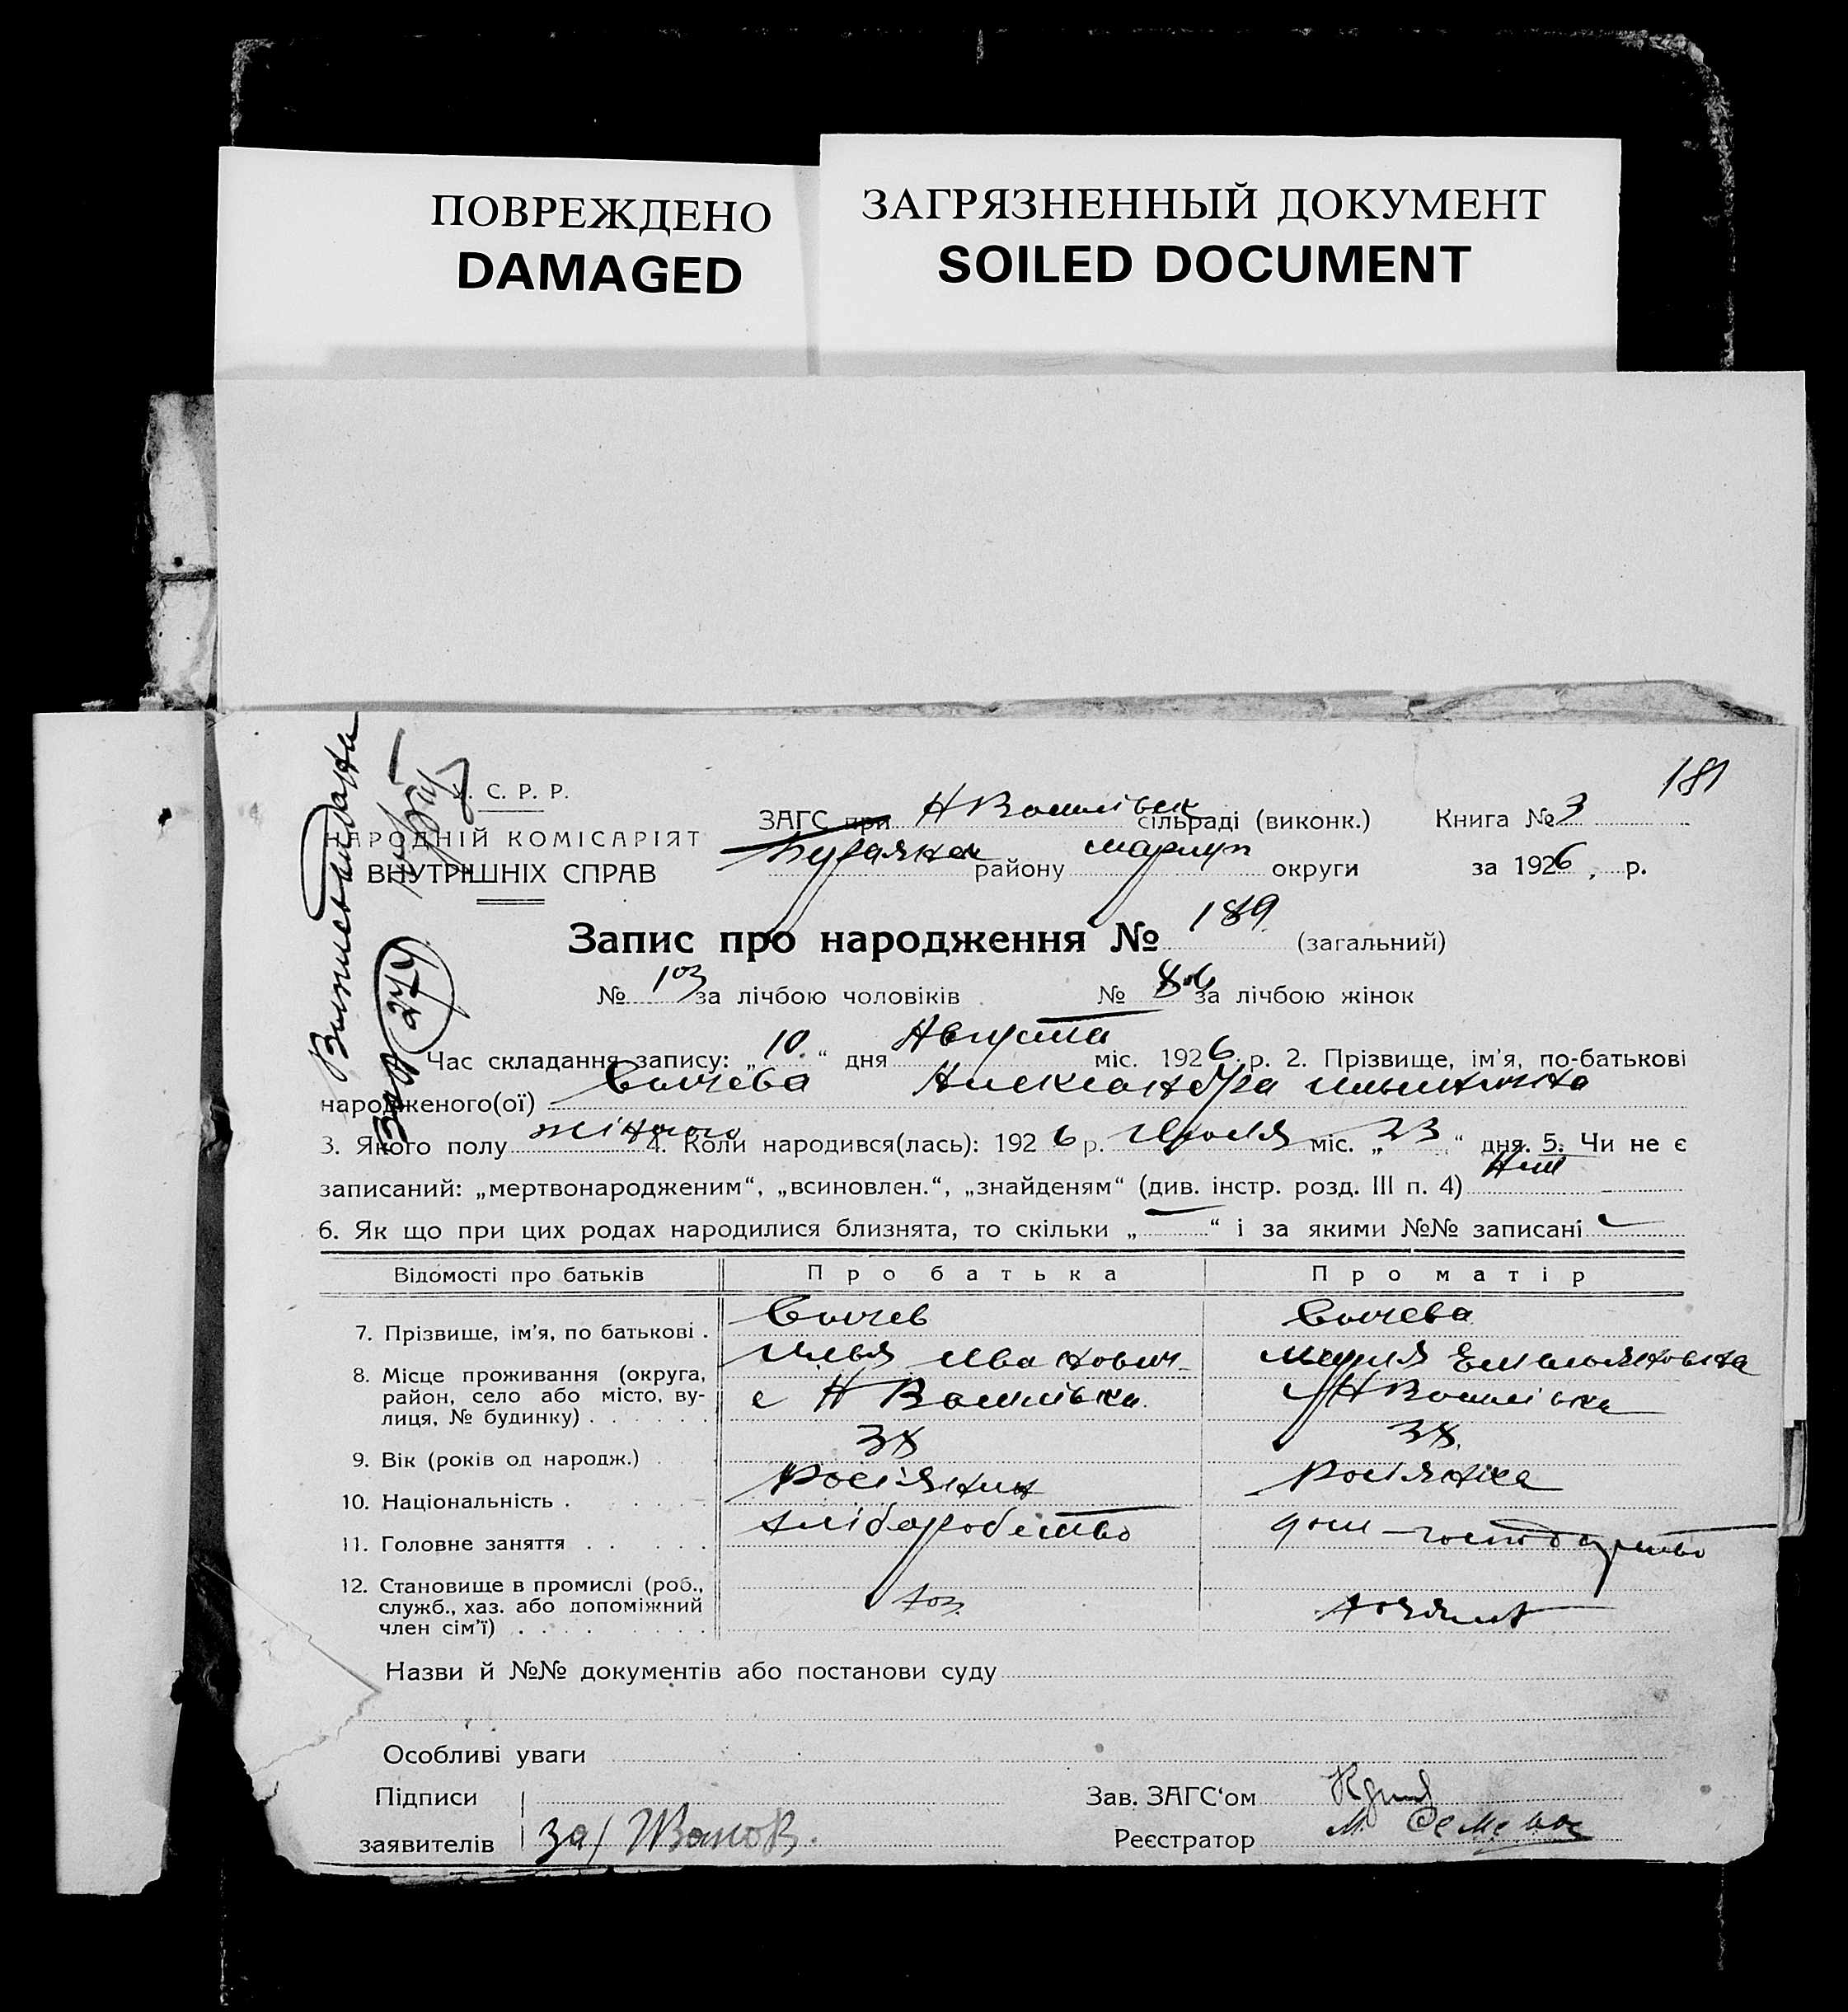 ПОВРЕЖДЕНО
DAMAGED
ЗАГРЯЗНЕННЫЙ ДОКУМЕНТ
SOILED DOCUMENT
181
С. Р. Р.
НАРОДНІЙ КОМІСАРІЯТ
ВНУТРІШНІХ СПРАВ
ЗАГС при сільраді (виконк.) Книга № 3
району округи за 1926, р.
Запис про народження № 189 (загальний)
№ 103 за лічбою чоловіків № 86 за лічбою жінок
274
Час складання запису: „10.“ дня Августа міс. 1926 р. 2. Прізвище, ім'я, по-батькові
народженого(ої) Сычева Александра
3. Якого полу жіночого 4. Коли народився(лась): 1926 р. Июля міс. „23“ дня. 5. Чи не є
записаний: „мертвонародженим“, „всиновлен.“, „знайденям“ (див. інстр. розд. III п. 4)
6. Як що при цих родах народилися близнята, то скільки „—“ і за якими №№ записані
Відомості про батьків Про батька Про матір
7. Прізвище, ім'я, по батькові . Сычев Сычева
Илья Иванович Мария Емельяновна
8. Місце проживання (округа, район, село або місто, вулиця, № будинку) с
9. Вік (років од народж.) 38 38.
10. Національність . Росіянин Росіянка
11. Головне заняття . . хліборобство дом-господарство
12. Становище в промислі (роб., служб., хаз. або допоміжний член сім'ї) хоз.
Назви й №№ документів або постанови суду
Особливі уваги
Підписи
заявителів за/ Иванов.
Зав. ЗАГС'ом
Реєстратор М